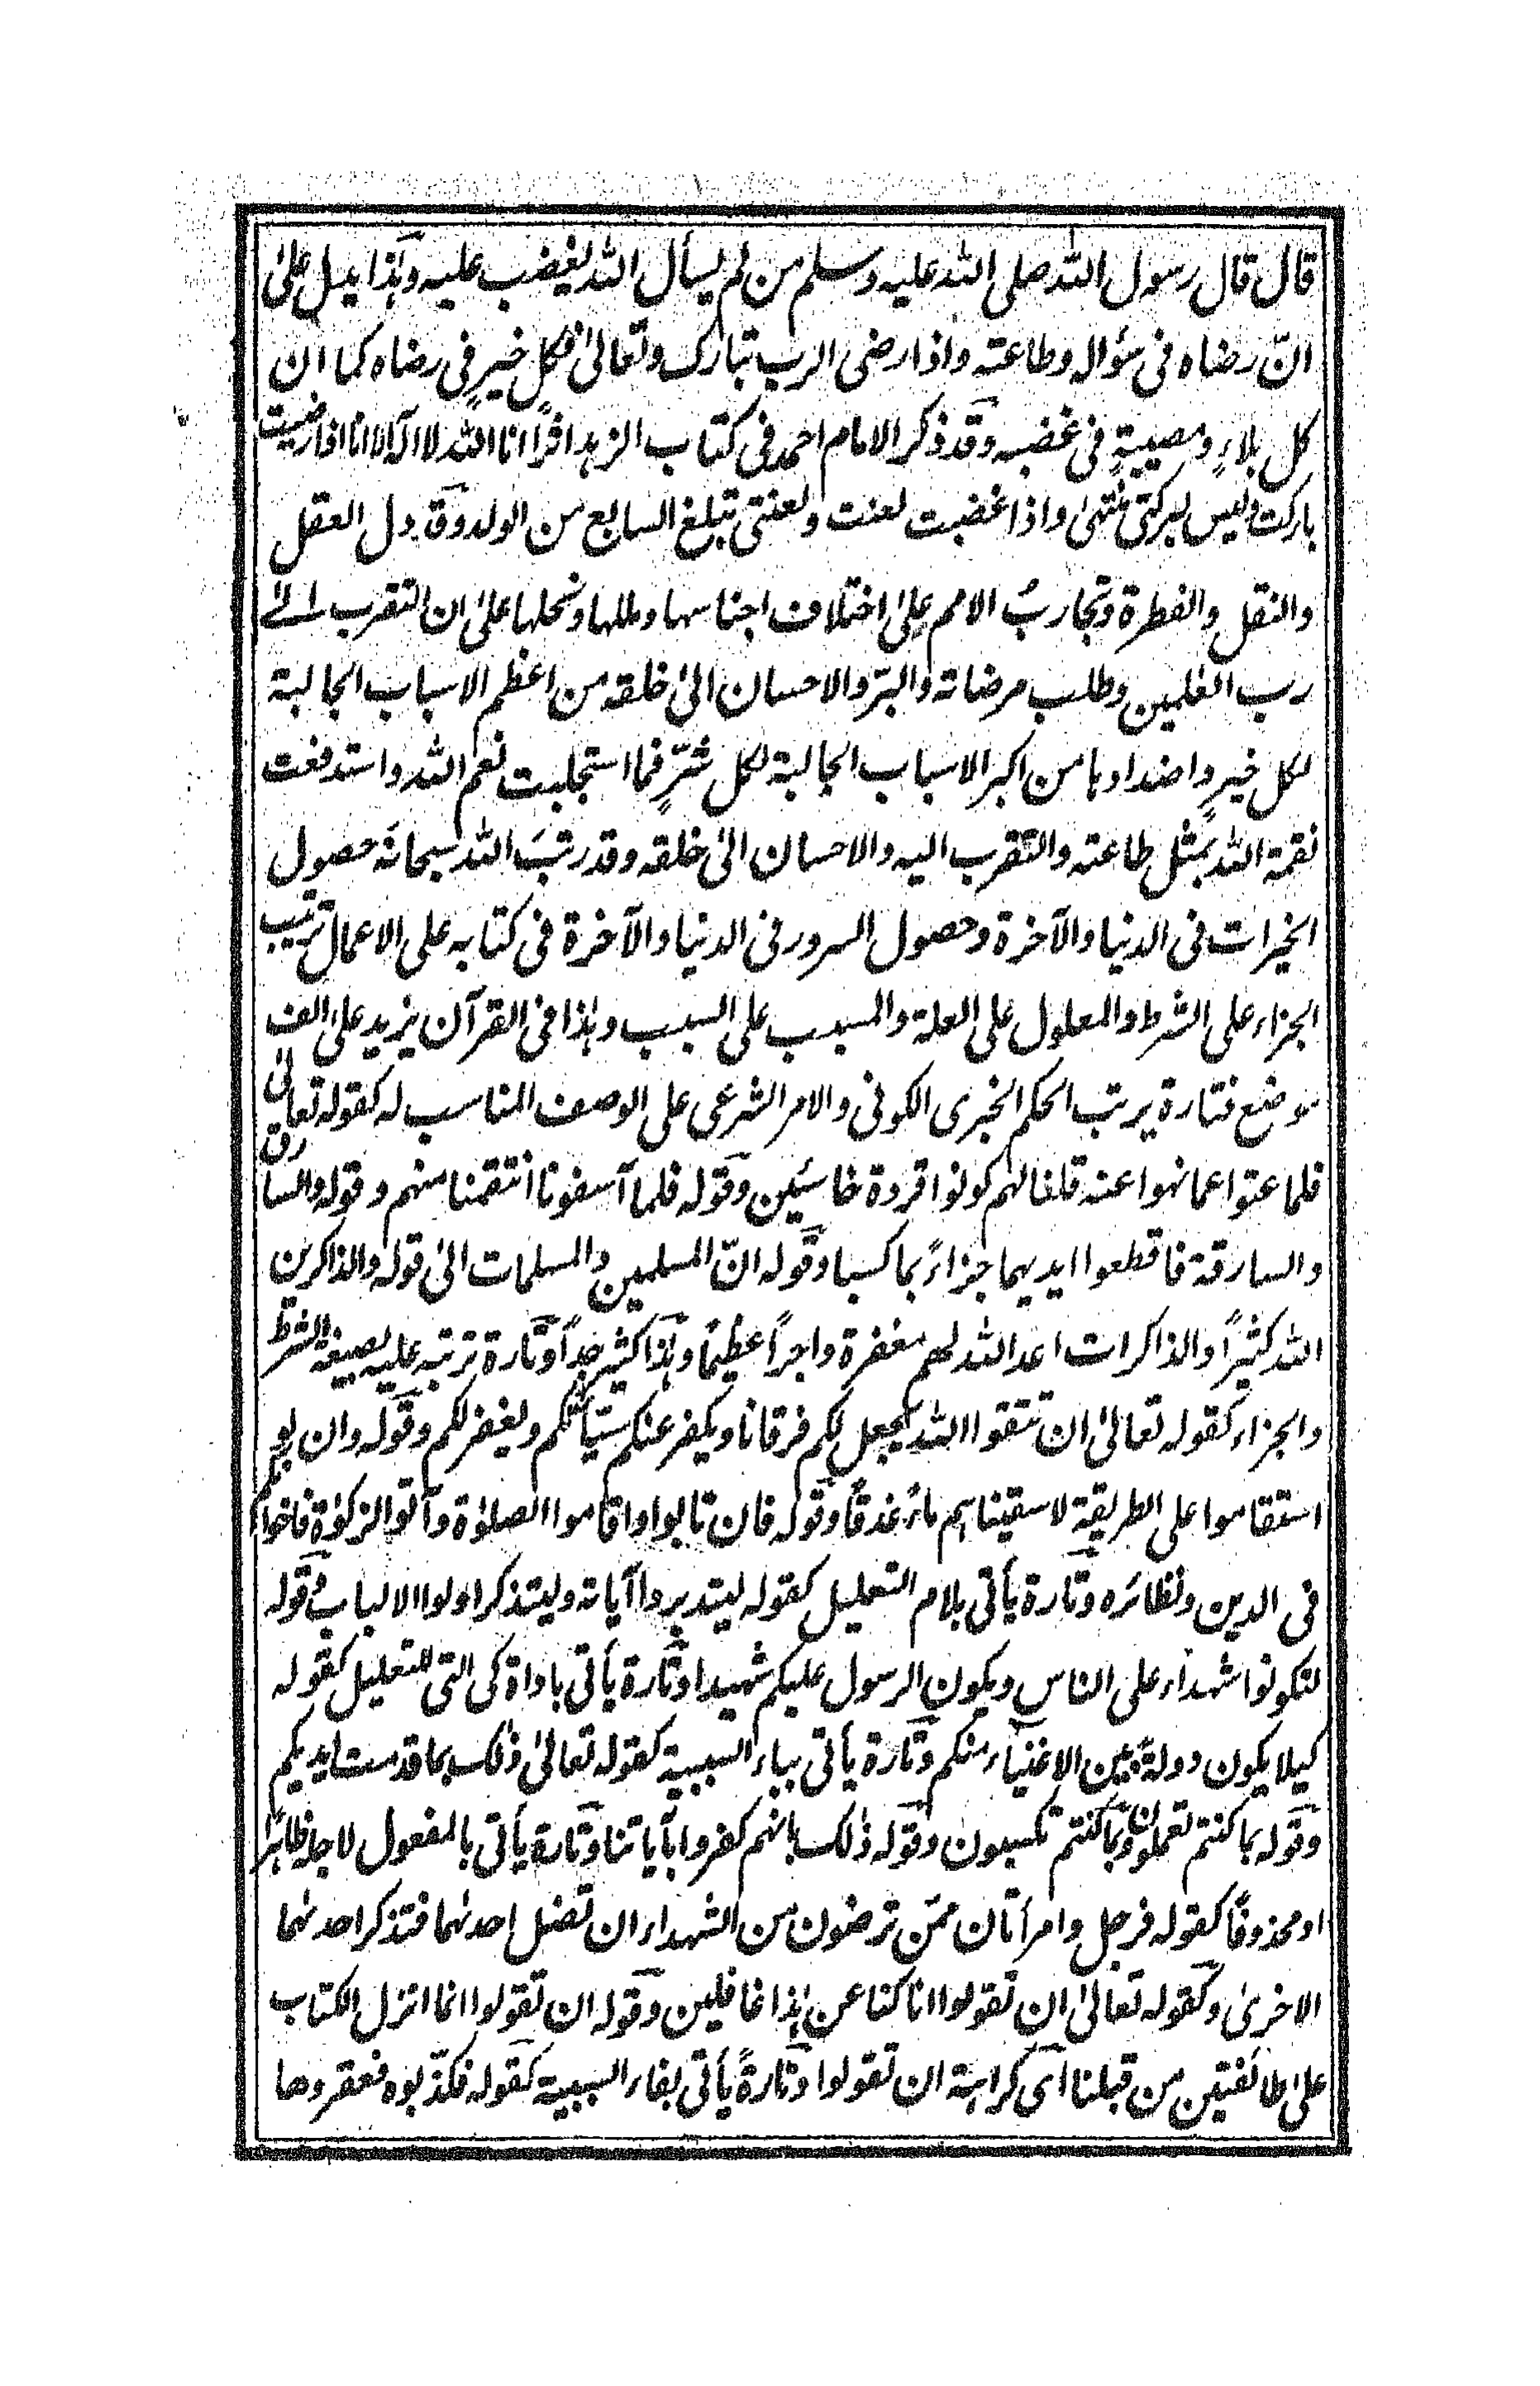 قال قال رسول الله صلى الله عليه وسلم من لم يسأل الله يغضب عليه وهذا يدل على
انّ رضاه فى سؤاله وطاعته واذا رضى الرب تبارك وتعالىٰ فكل خيرٍ فى رضاه كما ان
كل بلاءٍ ومصيبةٍ فى غضبه وقد ذكر الامام احمد فى كتاب الزهد اثرًا انا الله لا اله الا انا اذا رضيت
باركت وليس لبركتى منتهىٰ واذا غضبت لعنت ولعنتى تبلغ السابع من الولد وقد دل العقل
والنقل والفطرة وتجاربُ الامم علىٰ اختلاف اجناسها ومللها ونحلها علىٰ ان التقرب الىٰ
رب العٰلمين وطلب مرضاته والبرّ والاحسان الىٰ خلقه من اعظم الاسباب الجالبة
لكل خيرٍ واضدادها من اكبر الاسباب الجالبة لكل شرٍّ فما استجلبت نعم الله واستدفعت
نقمة الله بمثل طاعته والتقرب اليه والاحسان الىٰ خلقه وقد رتب الله سبحانه حصول
الخيرات فى الدنيا والآخرة وحصول السرور فى الدنيا والآخرة فى كتابه على الاعمال ترتيب
الجزاء على الشرط والمعلول على العلة والمسبب على السبب وهٰذا فى القرآن يزيد على الف
موضع فتارة يرتب الحكم الخبرى الكونى والامر الشرعى على الوصف المناسب له كقوله تعالىٰ
فلما عتوا عما نهوا عنه قلنا لهم كونوا قردة خاسئين وقوله فلما آسفونا انتقمنا منهم وقوله والسارق
والسارقة فاقطعوا ايديهما جزاءً بما كسبا وقوله انّ المسلمين والمسلمات الىٰ قوله والذاكرين
الله كثيرًا والذاكرات اعد الله لهم مغفرة واجرًا عظيمًا وهٰذا كثير جدًا وتارة ترتبه عليه بصيغة الشرط
والجزاء كقوله تعالىٰ ان تتقوا الله يجعل لكم فرقانا ويكفر عنكم سيّأتكم ويغفر لكم وقوله وان لو
استقاموا على الطريقة لاسقيناهم ماءً غدقًا وقوله فان تابوا واقاموا الصلوٰة وآتوا الزكوٰة فاخوانكم
فى الدين ونظائره وتارة يأتى بلام التعليل كقوله ليتدبروا آياته وليتذكر اولوا الالباب وقوله
لتكونوا شهداء على الناس ويكون الرسول عليكم شهيدا وتارة يأتى باداة كى التى للتعليل كقوله
كيلا يكون دولةً بين الاغنياء منكم وتارة يأتى بباء السببية كقوله تعالىٰ ذٰلك بما قدمت ايديكم
وقوله بما كنتم تعملون وبما كنتم تكسبون وقوله ذٰلك بانهم كفروا بآياتنا وتارة يأتى بالمفعول لاجله ظاهرًا
او محذوفًا كقوله فرجل وامرأتان ممّن ترضون من الشهداء ان تضل احدىٰهما فتذكر احدىٰهما
الاخرىٰ وكقوله تعالىٰ ان تقولوا انا كنا عن هٰذا غافلين وقوله ان تقولوا انما انزل الكتاب
علىٰ طائفتين من قبلنا اى كراهة ان تقولوا وتارةً يأتى بفاء السببية كقوله فكذّبوه فعقروها